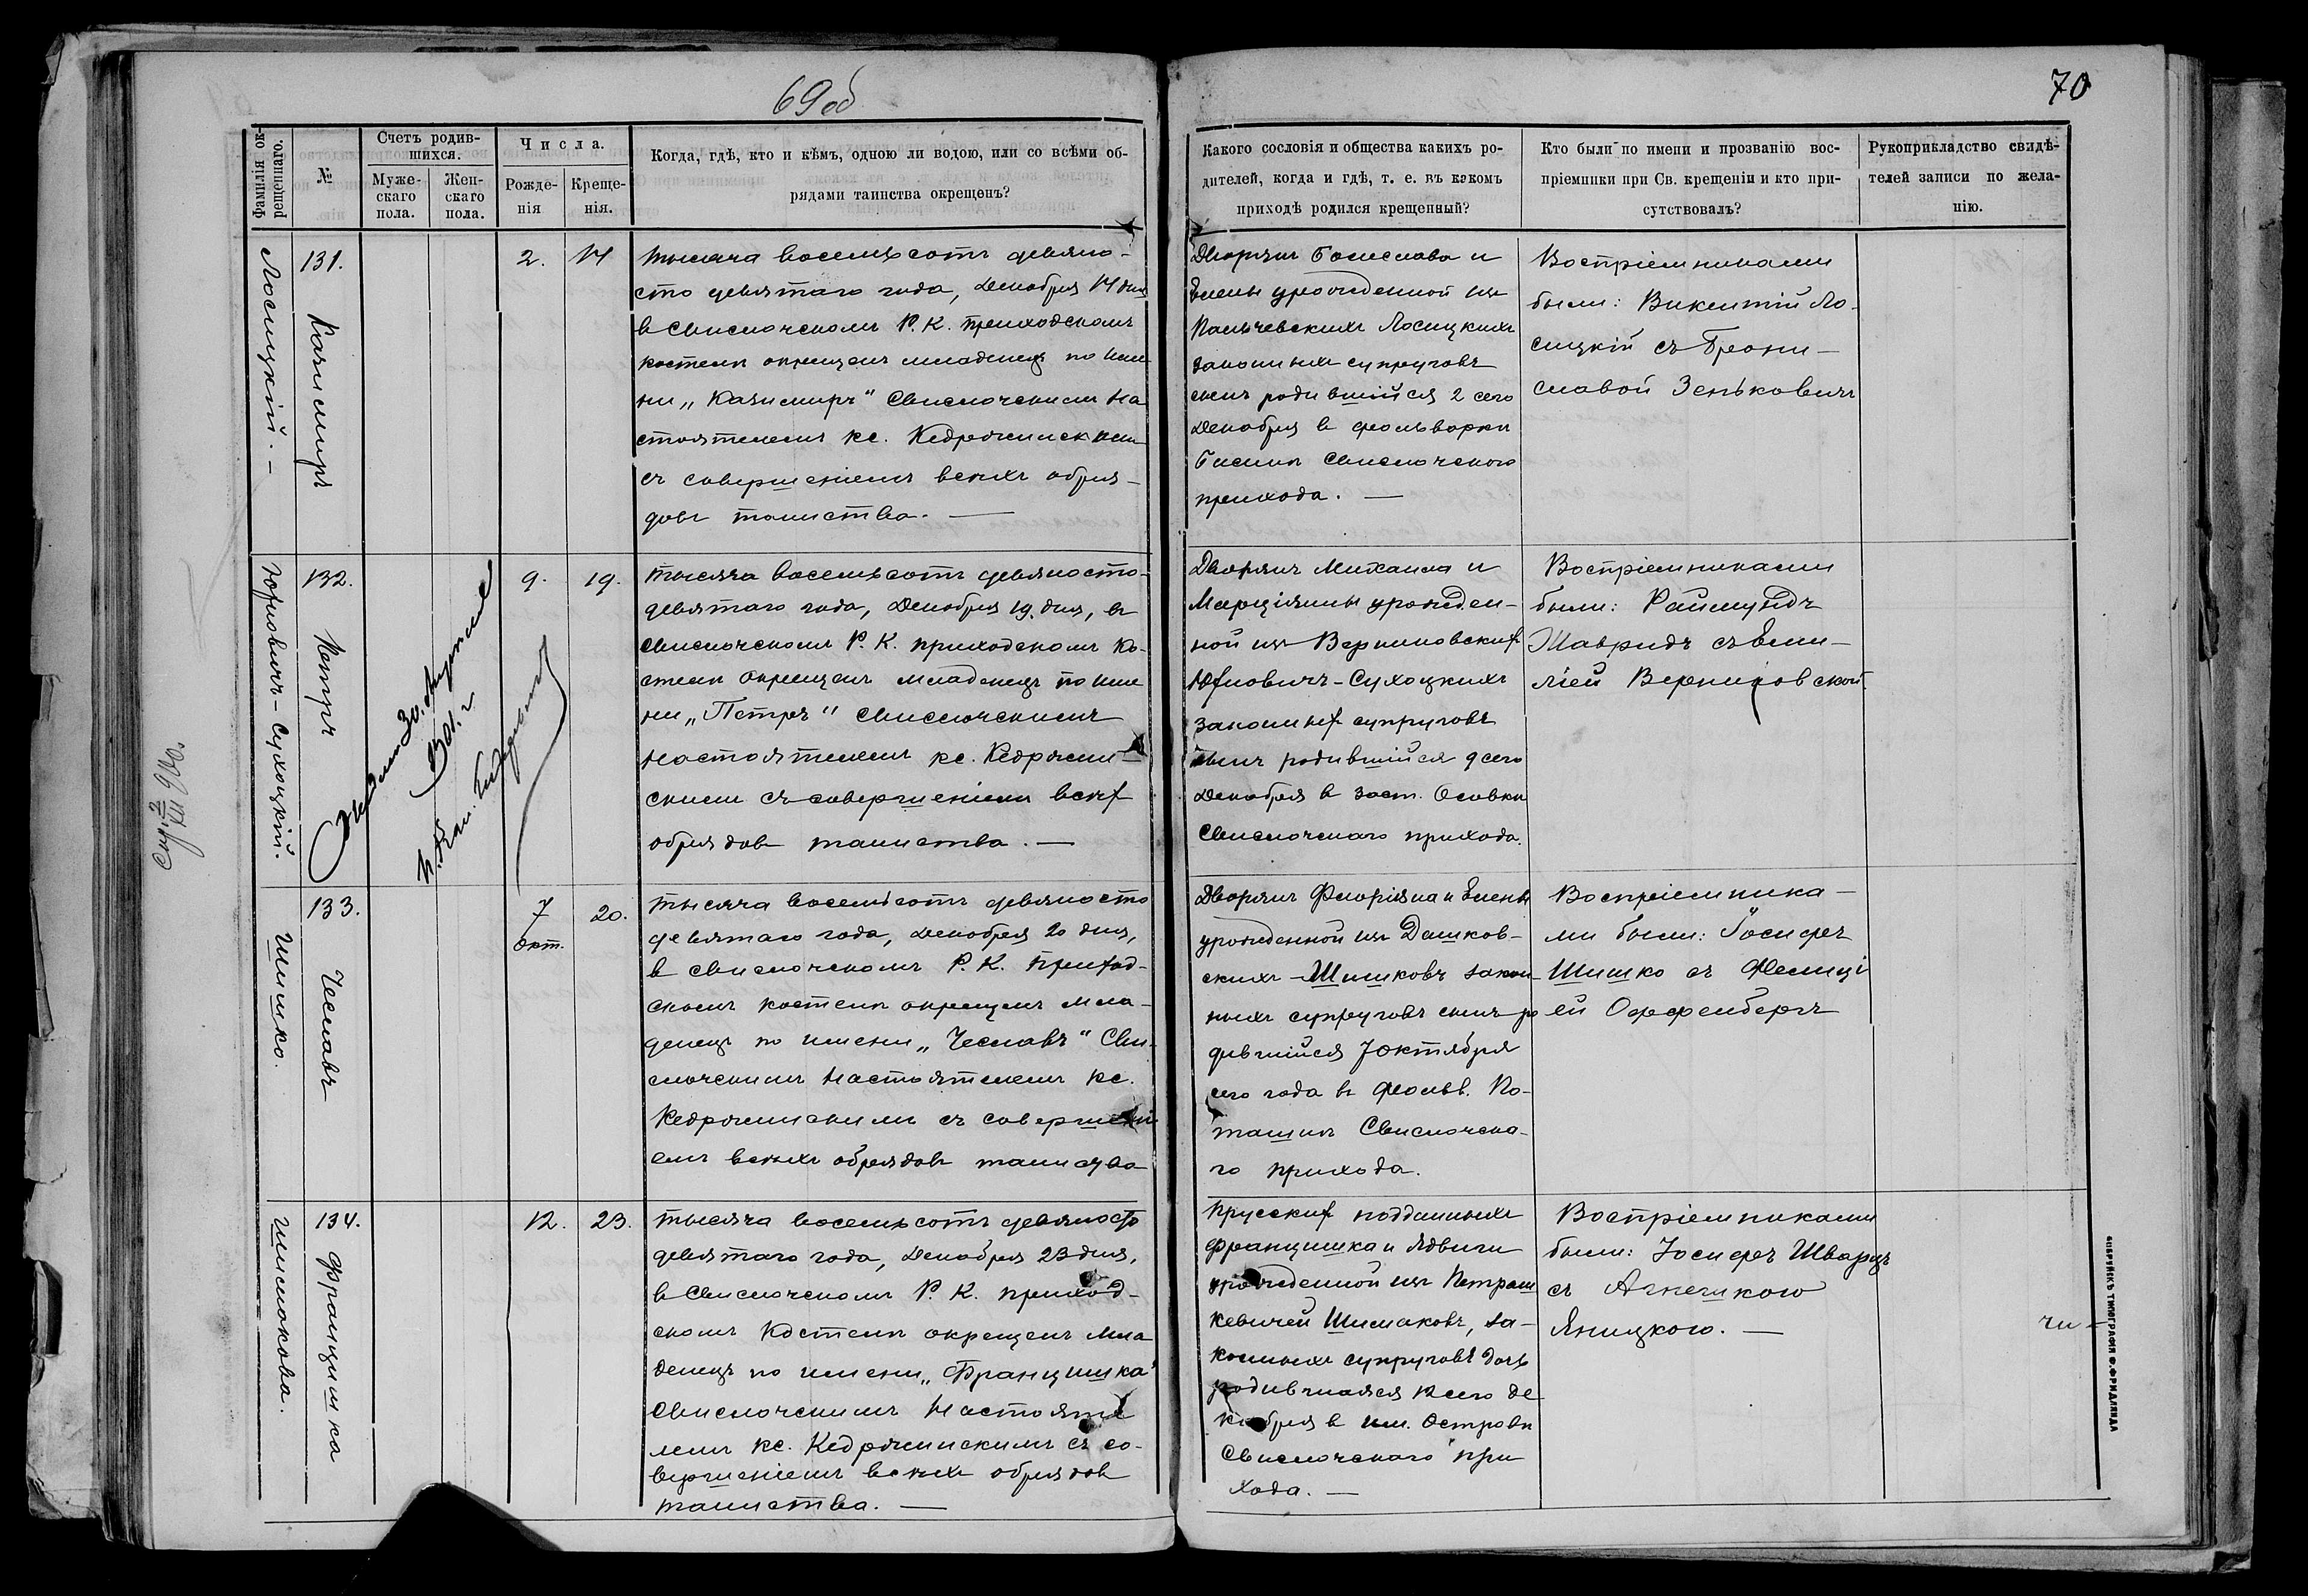 69 об
70
Фамилія ок-
рещеннаго.
№
Счетъ родив-
шихся.
Муже-
скаго
пола.
Жен-
скаго
пола.
Числа.
Рожде-
нія
Креще-
нія.
Когда, гдѣ, кто и кѣмъ, одною ли водою, или со всѣми об-
рядами таинства окрещенъ?
Какого сословія и общества какихъ ро-
дителей, когда и гдѣ, т. е. въ какомъ
приходѣ родился крещенный?
Кто были по имени и прозванію вос-
пріемники при Св. крещеніи и кто при-
сутствовалъ?
Рукоприкладство свидѣ-
телей записи по жела-
нію.
Лосицкій. —
131.
Казимиръ
2.
14
Тысяча восемьсотъ девяно-
сто девятаго года, Декабря 14 дня
въ Свислочскомъ Р. К. приходскомъ
костелѣ окрещенъ младенецъ по име
ни „Казимиръ" Свислочскимъ На
стоятелемъ кс. Кедржинскимъ
съ совершеніемъ всѣхъ обря-
довъ таинства. —
Дворянъ Болеслава и
Елены урожденной изъ
Пальчевскихъ Лосицкихъ
законныхъ супруговъ
сынъ родившійся 2 сего
Декабря въ фольваркѣ
Свислочского
прихода. —
Воспріемниками
были: Викентій Ло-
сицкій съ Брони-
славой Зеньковичъ
Юхновичъ-Сухоцкій.
132.
Петръ
9.
19.
Тысяча восемьсотъ девяносто-
девятаго года, Декабря 19. дня, въ
Свислочскомъ Р. К. приходскомъ Ко-
стелѣ окрещенъ младенецъ по име
ни „Петръ" Свислочскимъ
настоятелемъ кс. Кедржин-
скимъ съ совершеніемъ всѣх
обрядовъ таинства. —
Дворянъ Михаила и
Марціянны урожден-
ной изъ Верниковских
Юхновичъ-Сухоцкихъ
законных супруговъ
сынъ родившійся 9 сего
Декабря въ заст. Осовкѣ
Свислочскаго прихода.
Воспріемниками
были: Раймундъ
Жавридъ съ Еми-
ліей Верниковской.
1901. г.
1900
Шишко.
133.
Чеславъ
7
окт.
20.
Тысяча восемьсотъ девяносто
девятаго года, Декабря 20 дня,
въ Свислочскомъ Р. К. приход-
скомъ костелѣ окрещенъ мла-
денецъ по имени „Чеславъ" Сви-
слочскимъ Настоятелемъ кс.
Кедржинскимъ съ совершені
емъ всѣхъ обрядовъ таинства
Дворянъ Флоріяна и Елены
урожденной изъ Дашков-
скихъ-Шишковъ закон-
ныхъ супруговъ сынъ ро
дившійся 7 октября
сего года въ фольв. По-
ташнѣ Свислочска-
го прихода.
Воспріемника-
ми были: Іосифъ
Шишко съ Фелиці
ей Оффенбергъ
Шимокова.
134.
Францишка
12.
23.
Тысяча восемьсотъ девяносто
девятаго года, Декабря 23 дня,
въ Свислочскомъ Р. К. приход-
скомъ Костелѣ окрещенъ мла
денецъ по имени „Францишка"
Свислочскимъ Настояте
лемъ кс. Кедржинскимъ съ со-
вершеніемъ всѣхъ обрядовъ
таинства. —
Прусских подданныхъ
Францишка и Ядвиги
урожденной изъ Петраш
кевичей Шимоковъ, за-
конныхъ супруговъ дочь
родившаяся 12 сего де
кабря въ им. Островѣ
Свислочскаго при
хода. —
Воспріемниками
были: Іосифъ Шварцъ
съ Агнешкою
Яницкою. —
БОБРУЙСКЪ ТИПОГРАФІЯ Ф. ФРИДЛЯНДА